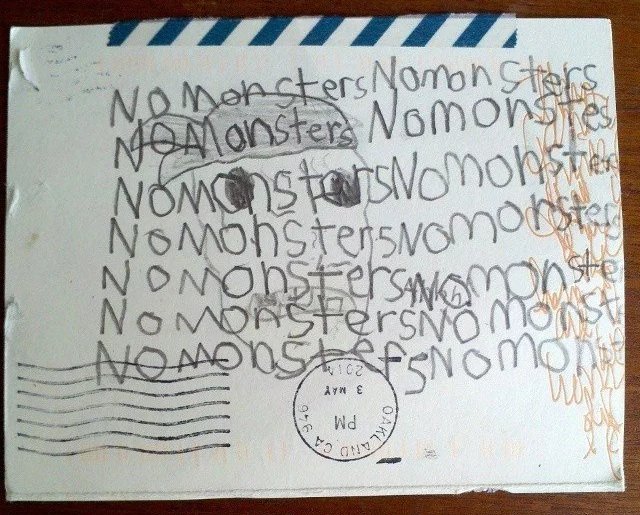 No monsters No monsters
No Monsters No monstes
No monsters No monster
No monsters No monster
No monsters No monste
No monsters No monst
No monsters No monste
OAKLAND CA 946
PM
3 MAY
2014